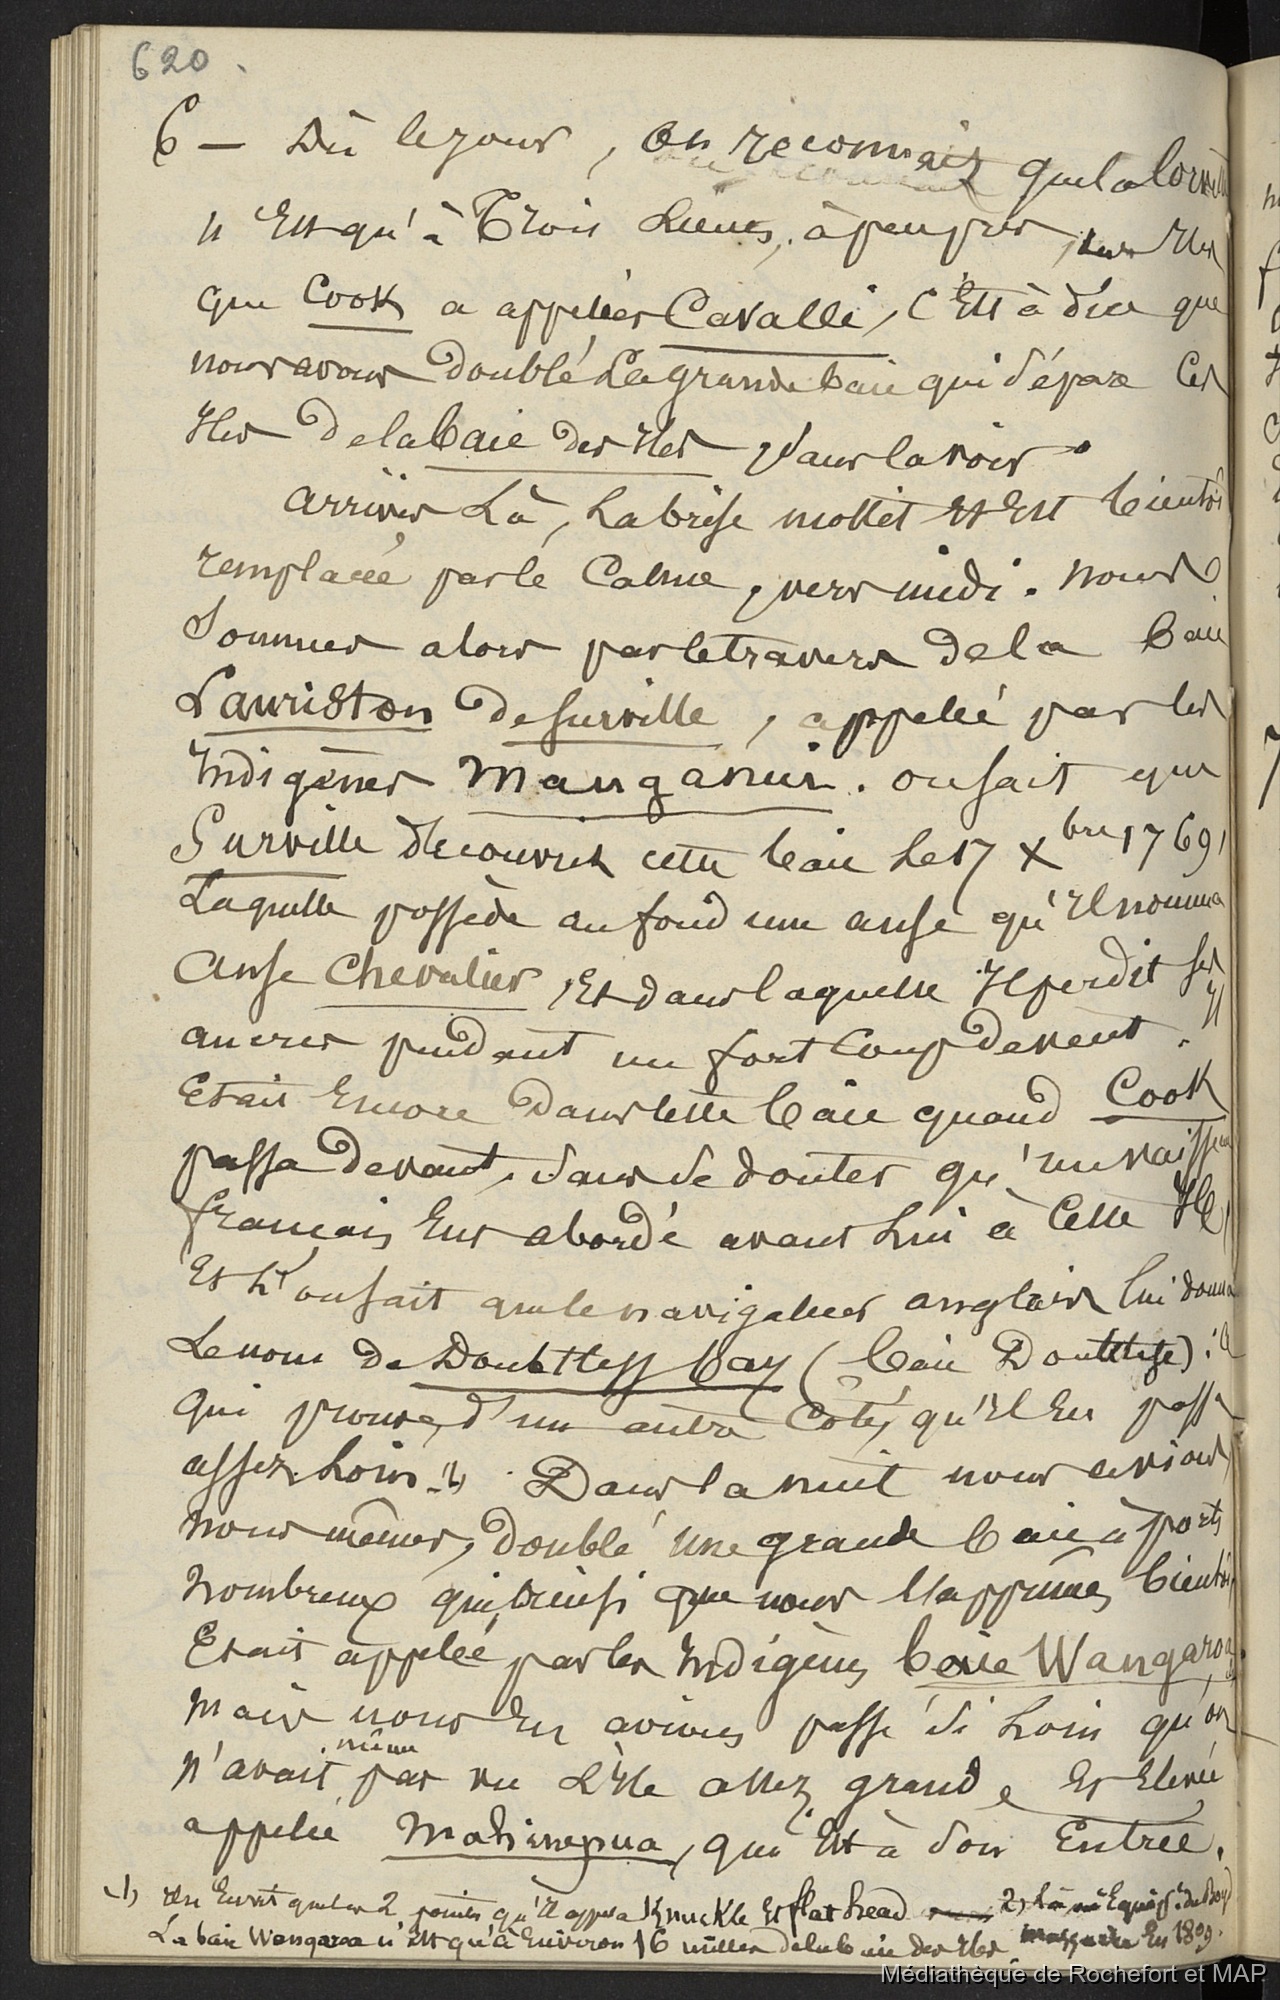 620.
6 — Dès le jour, on reconnaît que la Corvette
n'Est qu'à Trois Lieues, à peu près, des Iles
que Cook a appelées Cavalli, C'Est à dire que
nous avons Doublé La grande baie qui Sépare Ces
Iles De la baie des Iles, Sans la voir.
Arrivés Là, La brise mollit Et Est bientôt
remplacée par le Calme, vers midi. Nous
Sommes alors par le travers De la Baie
Lauriston De Surville, appelée par les
Indigènes Manganui. on sait que
Surville découvrit cette baie Le 17 Xbre 1769,
Laquelle possède au fond une anse qu'Il nomma
Anse Chevalier, Et dans laquelle Il perdit Ses
ancres pendant un fort Coup De vent. Il
Etait Encore Dans Cette baie quand Cook
passa Devant, Sans Se douter qu'un vaisseau
français Eut abordé avant Lui à Cette Ile,
Et L'on sait que le navigateur anglais lui donna
Le nom De Doubtless bay (baie Douteuse) : ce
qui prouve, d'un autre Côté, qu'Il En passa
assez Loin. Dans la nuit nous avions
nous mêmes, Doublé une grande baie à ports
nombreux qui, ainsi que nous l'apprîmes bientôt,
Etait appelée par les Indigènes baie Wangaroa,
Mais nous En avions passé Si Loin qu'on
n'avait même pas vu L'Ile assez grande Et Elevée
appelée Mahinepua, qui Est à Son Entrée.
1) qu'Il appela Knuckle Et flat head 2) Equip. du Boyd
La baie Wangaroa n'Est qu'à Environ 16 milles de la baie des Iles. massacré En 1809.
Médiathèque de Rochefort et MAP